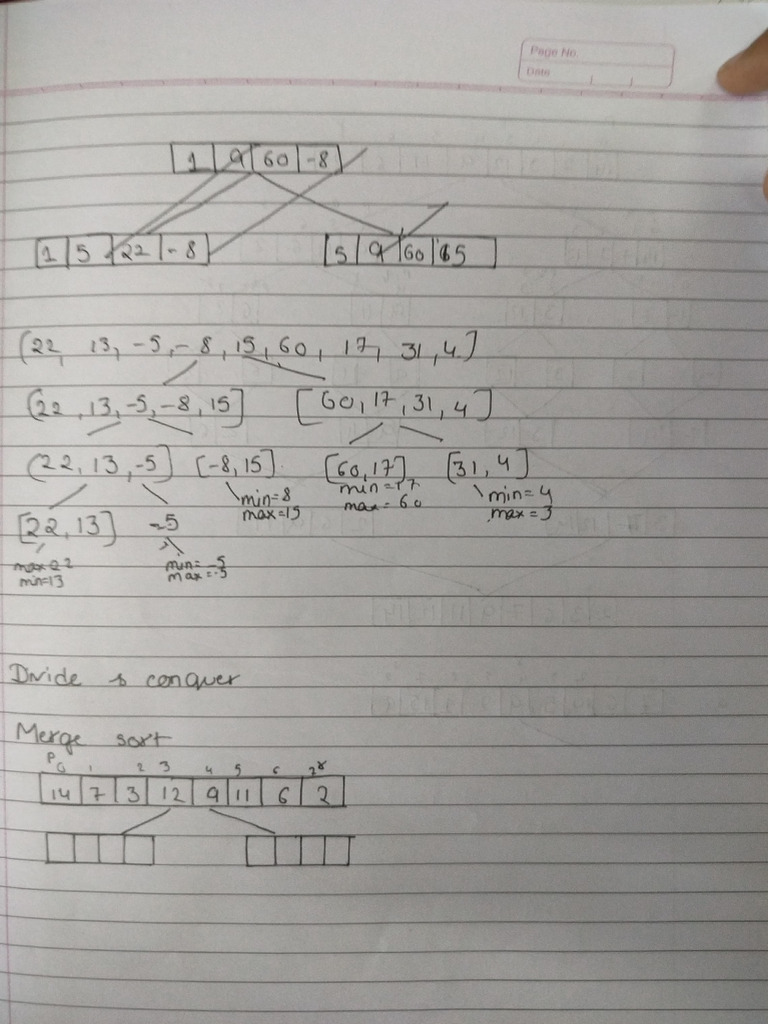 Page No.
Date
1 9 60 -8
1 5 22 -8 5 9 60 65
[22, 13, -5, -8, 15, 60, 17, 31, 4]
[22, 13, -5, -8, 15] [60, 17, 31, 4]
[22, 13, -5] [-8, 15] [60, 17] [31, 4]
min=8 min=17 min=4
max=15 max=60 max=3
[22, 13] -5
max=22 min=-5
min=13 max=-5
Divide & conquer
Merge sort
P
0 1 2 3 4 5 6
14 7 3 12 9 11 6 2